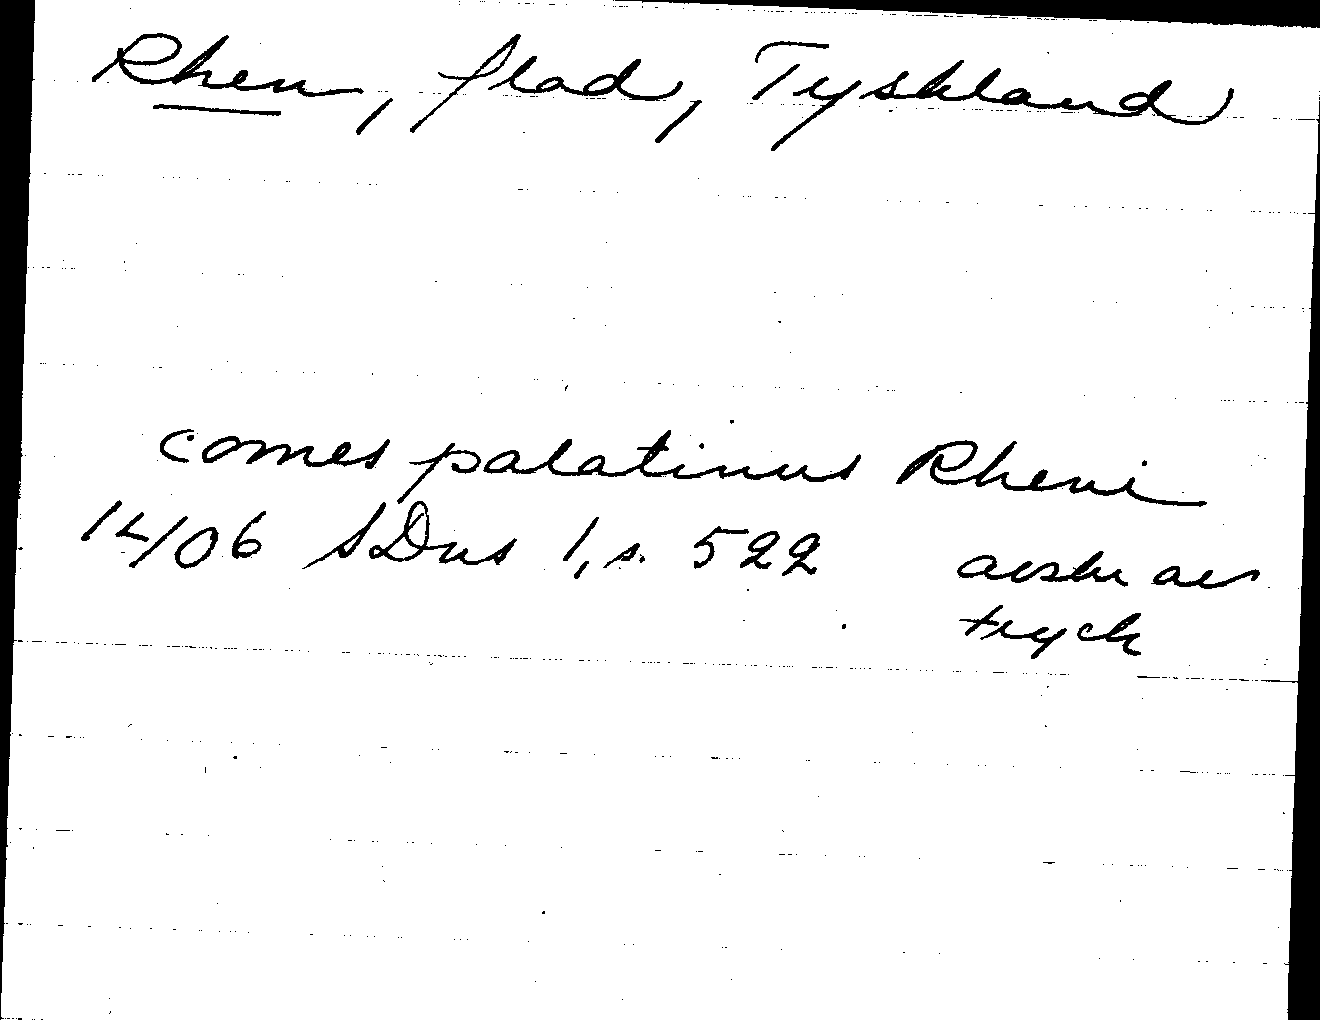 Rhen, flod, Tyskland
comes palatinus Rheni
1406 SDns 1, s. 522 avskr av
tryck